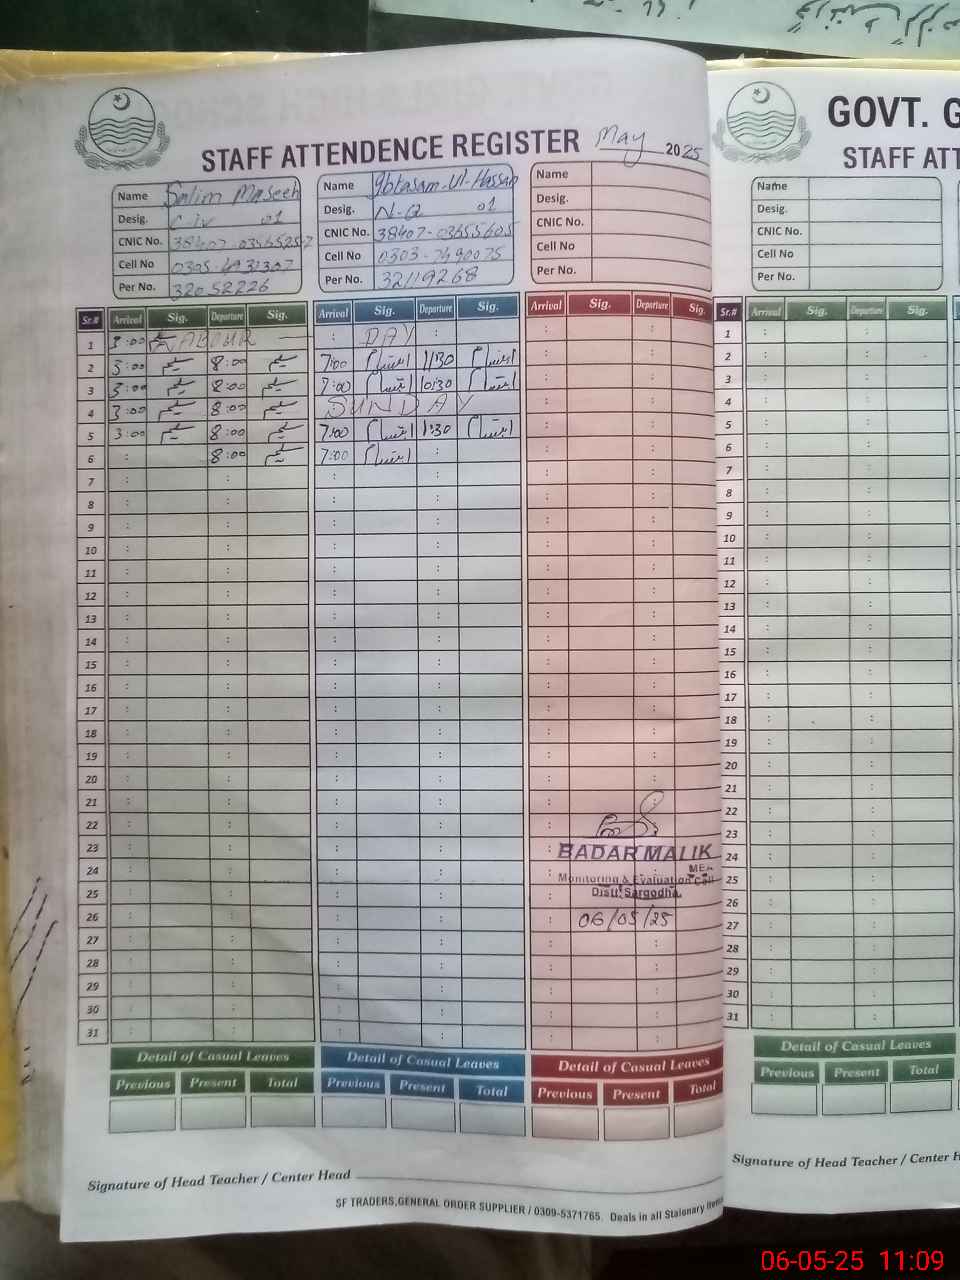 STAFF ATTENDENCE REGISTER May 2025
Name Salim Maseeh
Desig. C-IV 01
CNIC No.
Cell No
Per No. 32052226
Name Ibtasam-Ul-Hassan
Desig. N-Q 01
CNIC No. 38407-03655605
Cell No 0303-7490075
Per No. 32119268
Name
Desig.
CNIC No.
Cell No
Per No.
Sr.# Arrival Sig. Departure Sig. Arrival Sig. Departure Sig. Arrival Sig. Departure Sig.
1 3:00 LABOUR DAY
2 3:00 سلیم 8:00 سلیم 7:00 ابتسام 1:30 ابتسام
3 3:00 سلیم 8:00 سلیم 7:00 ابتسام 10:30 ابتسام
4 3:00 سلیم 8:00 سلیم SUNDAY
5 3:00 سلیم 8:00 سلیم 7:00 ابتسام 1:30 ابتسام
6 8:00 سلیم 7:00 ابتسام
7
8
9
10
11
12
13
14
15
16
17
18
19
20
21
22
23
24
25
26
27
28
29
30
31
BADAR MALIK
Monitoring & Evaluation Cell
Distt. Sargodha.
06/05/25
Detail of Casual Leaves
Previous Present Total
Detail of Casual Leaves
Previous Present Total
Detail of Casual Leaves
Previous Present Total
Signature of Head Teacher / Center Head
SF TRADERS,GENERAL ORDER SUPPLIER / 0309-5371765. Deals in all Stationary Items
GOVT. G
STAFF ATT
Name
Desig.
CNIC No.
Cell No
Per No.
Sr.# Arrival Sig. Departure Sig.
1
2
3
4
5
6
7
8
9
10
11
12
13
14
15
16
17
18
19
20
21
22
23
24
25
26
27
28
29
30
31
Detail of Casual Leaves
Previous Present Total
Signature of Head Teacher / Center H
06-05-25 11:09